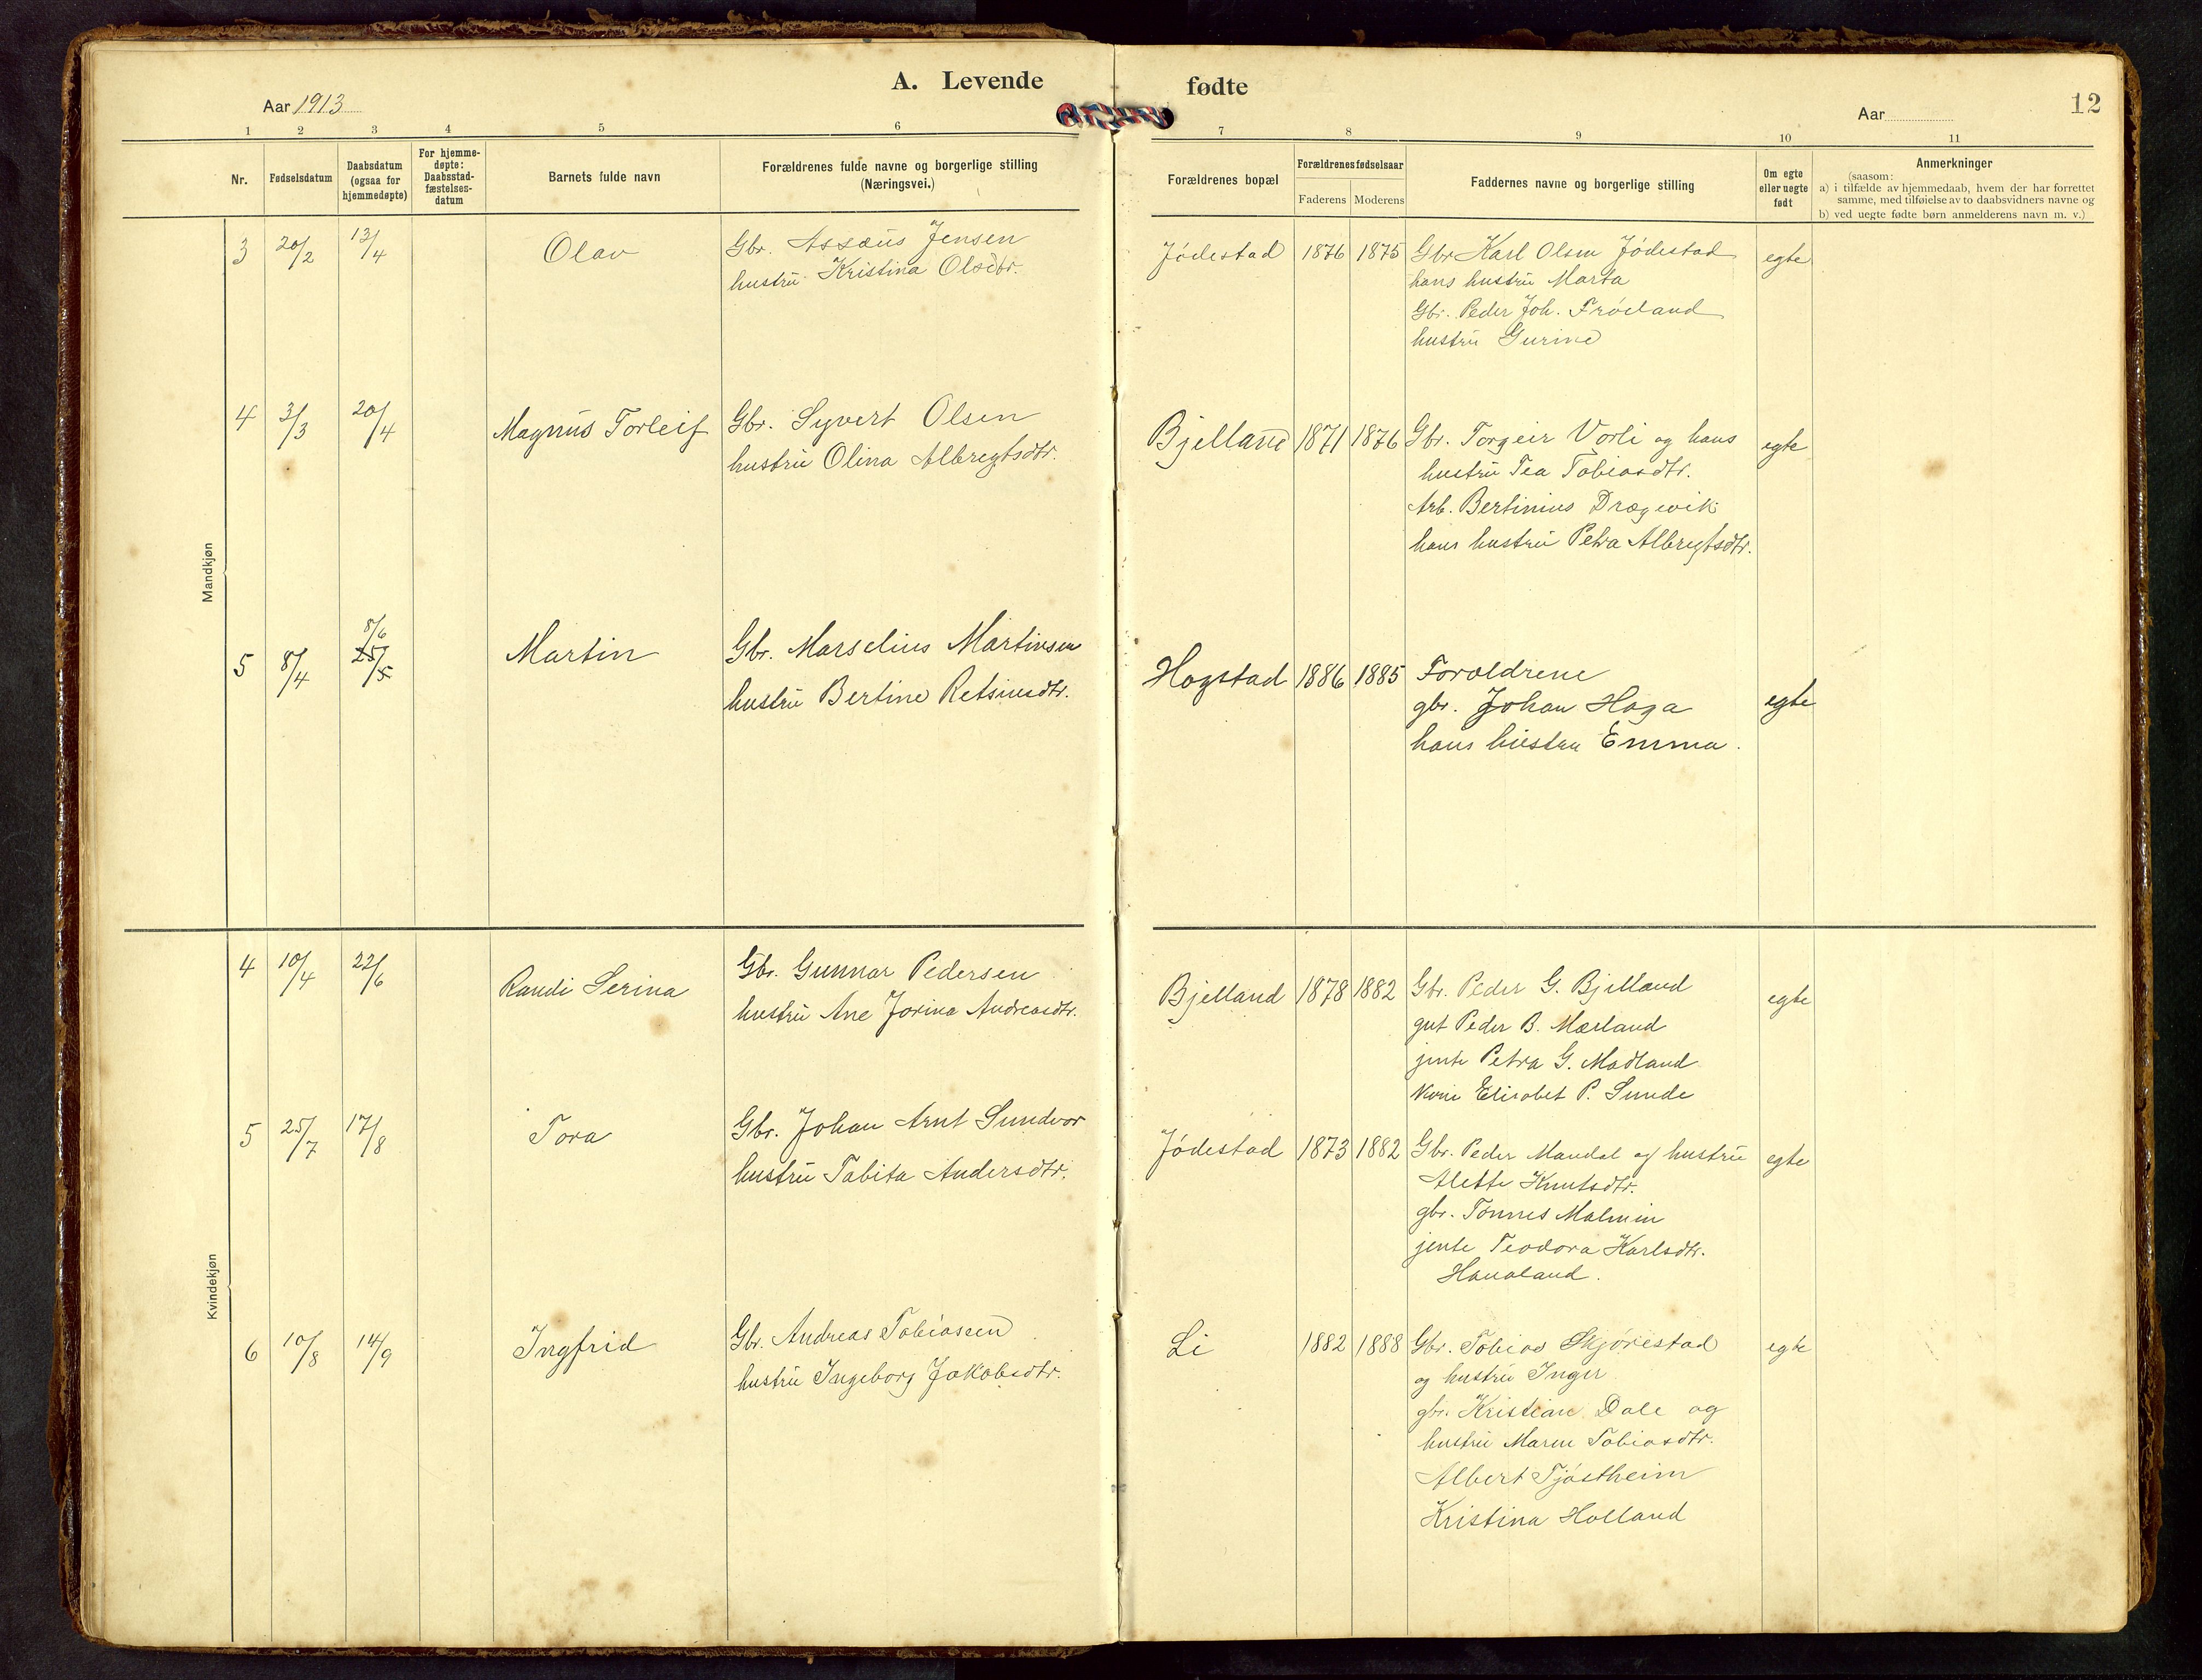 A. Levende fødte
Aar 1913
Aar
12
1 2 3 4 5 6 7 8 9 10 11
Nr.
Fødselsdatum
Daabsdatum
(ogsaa for
hjemmedøpte)
For hjemme-
døpte:
Daabsstad-
fæstelses-
datum
Barnets fulde navn
Forældrenes fulde navne og borgerlige stilling
(Næringsvei.)
Forældrenes bopæl
Forældrenes fødselsaar
Faderens Moderens
Faddernes navne og borgerlige stilling
Om egte
eller uegte
født
Anmerkninger
(saasom:
a) i tilfælde av hjemmedaab, hvem der har forrettet
samme, med tilføielse av to daabsvidners navne og
b) ved uegte fødte børn anmelderens navn m. v.)
Mandkjøn
3 20/2 13/4 Olav
Gbr. Assæus Jensen
hustru Kristina Olsdtr.
Jødestad 1876 1875
Gbr Karl Olsen Jødestad
hans hustru Marta
Gbr. Peder Joh. Frøiland
hustru Gurine
egte
4 3/3 20/4 Magnus Torleif
Gbr. Syvert Olsen
hustru Olina Albregtsdtr.
Bjelland 1871 1876
Gbr. Torgeir Vorli og hans
hustru Tea Tobiasdtr.
Arb. Bertinius Drægevik
hans hustru Petra Albregtsdtr.
egte
5 8/4 8/6
25/5
Martin
Gbr. Marselius Martinsen
hustru Bertine Retsiusdtr.
Hogstad 1886 1885
Foræeldrene
gbr. Johan Haga
hans hustru Emma.
egte
Kvindekjøn
4 10/4 22/6 Randi Serina
Gbr. Gunnar Pedersen
hustru Ane Jorina Andreasdtr.
Bjelland 1878 1882
Gbr. Peder G. Bjelland
gut Peder B. Mæland
jente Petra G. Madland
kone Elisabet P. Sunde
egte
5 25/7 17/8 Tora
Gbr. Johan Arnt Sundvor
hustru Tabita Andersdtr.
Jødestad 1873 1882
Gbr. Peder Mandal og hustru
Alette Knutsdtr.
gbr. Tønnes Malmin
jente Teodora Karlsdtr.
Hanaland.
egte
6 10/8 14/9 Ingfrid
Gbr. Andreas Tobiassen
hustru Ingeborg Jakobsdtr.
Li 1882 1888
Gbr. Tobias Skjørestad
og hustru Inger
gbr. Kristian Dale og
hustru Maren Tobiasdtr.
Albert Tjøstheim
Kristina Holland
egte